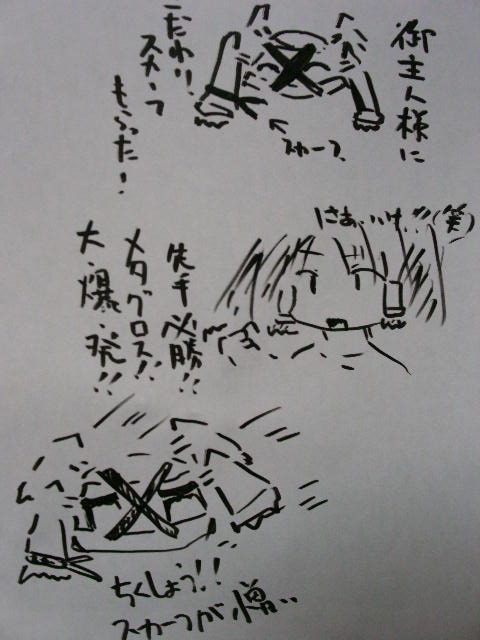 御主人様に
こだわりスカーフ
もらった!
スカーフ
にあ、いけ、!!(笑)
先手必勝!!
メタグロス!!
大・爆・発!!
ちくしょう!!
スカーフが憎い